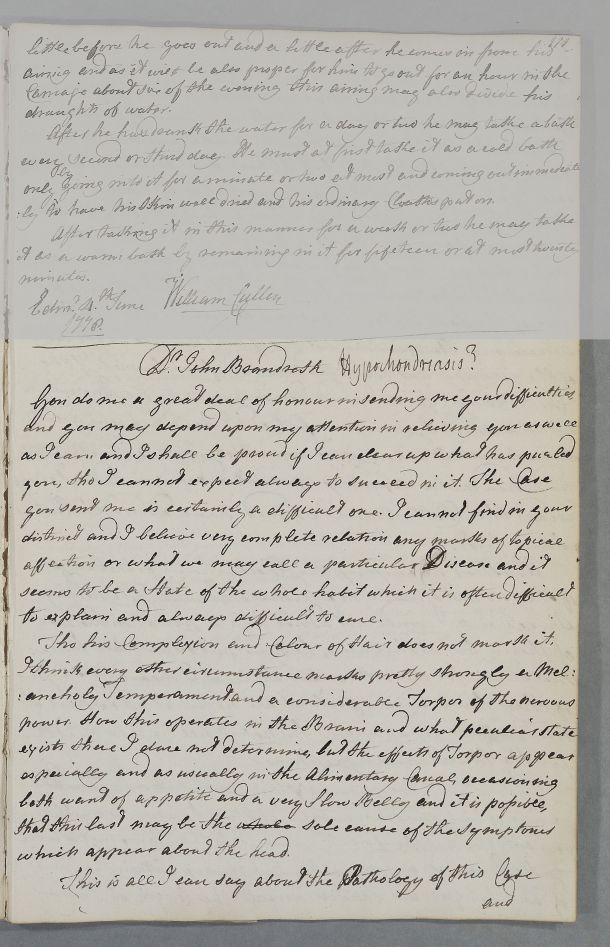 little before he goes out and a little after he comes in from his
airing and as it will be also proper for him to go out for an hour in the
Carriage about six of the evening this airing may also divide his
draughts of water.
After he has drank the water for a day or two he may take a bath
every second or third day. He must at first take it as a cold bath
only by going into it for a minute or two at most and coming out immediate
:ly to have his skin well dried and his ordinary Cloaths put on.
After taking it in this manner for a week or two he may take
it as a warm bath by remaining in it for fifteen or at most twenty
minutes.
Edinr. 4th June William Cullen
1778.
Dr. John Brandreth Hypochondriasis?
You do me a great deal of honour in sending me your difficulties
and you may depend upon my attention in relieving you as well
as I can and I shall be proud if I can clear up what has puzzled
you, tho I cannot expect always to succeed in it. The Case
you sent me is certainly a difficult one. I cannot find in your
distinct and I believe very complete relation any marks of topical
affection or what we may call a particular Disease and it
seems to be a State of the whole habit which it is often difficult
to explain and always difficult to cure.
Tho his Complexion and Colour of Hair does not mark it.
I think every other circumstance marks pretty strongly a Mel:
:ancholy Temperament and a considerable Torpor of the nervous
power. How this operates in the Brain and what peculiar state
exists there I dare not determine, but the effects of Torpor appear
especially and as usually in the Alimentary Canal, occasioning
both want of appetite and a very slow Belly and it is possible,
that this last may be the whole sole cause of the symptoms
which appear about the head.
This is all I can say about the Pathology of this Case
and